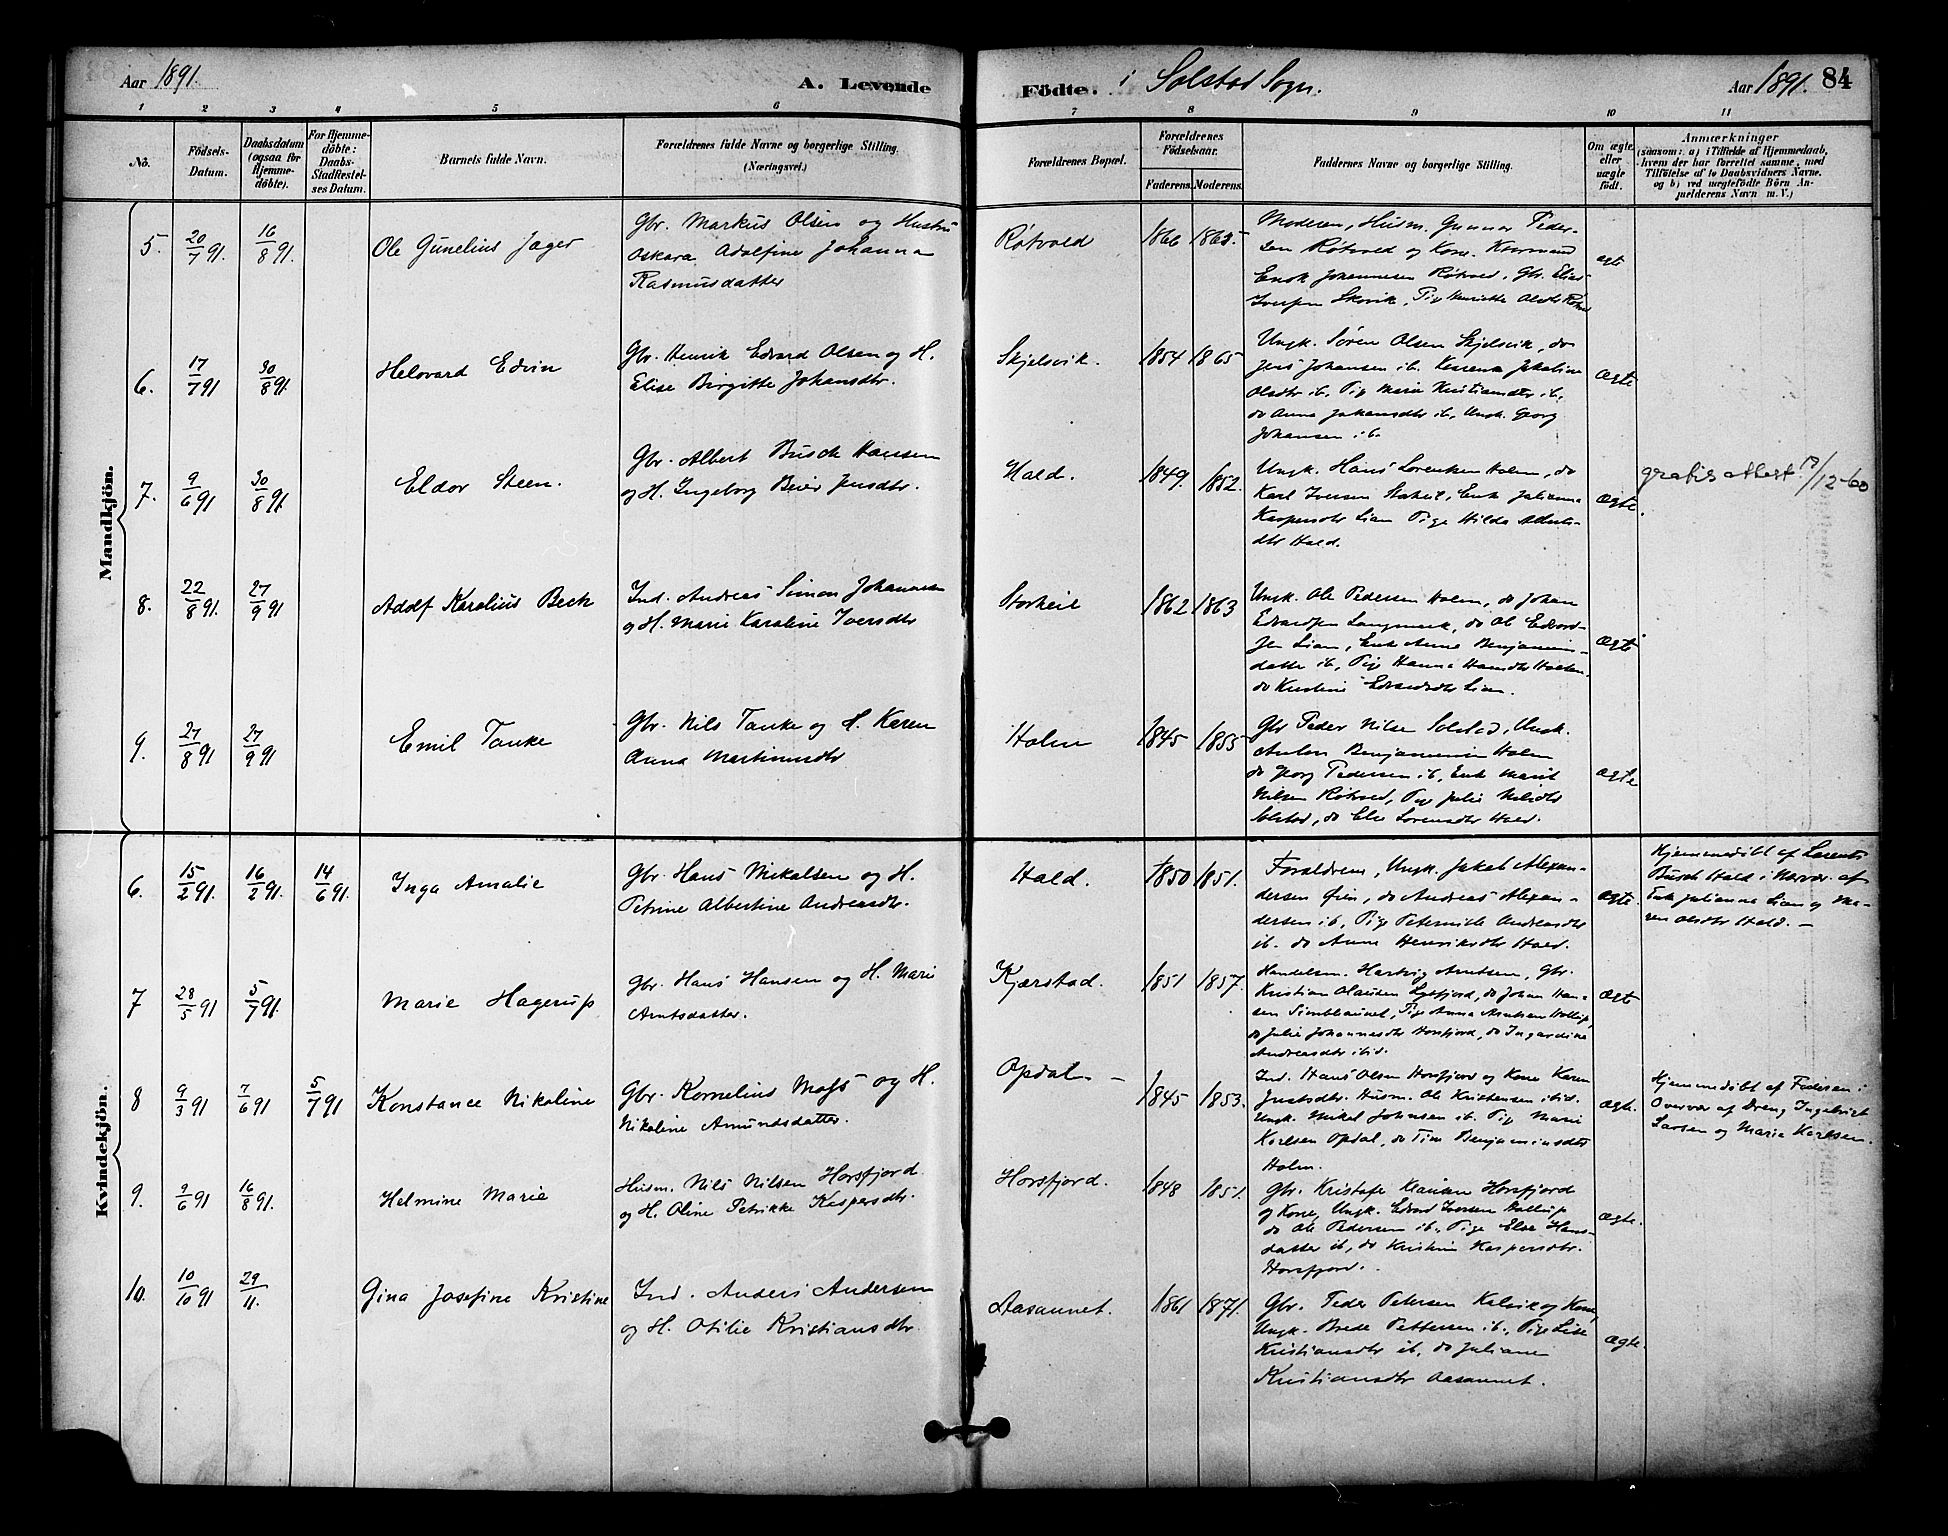 Aar 1891.
A. Levende
Födte. i Solstad Sogn.
Aar 1891. 84
1 2 3 4 5 6 7 8 9 10 11
No.
Födsels-Datum.
Daabsdatum (ogsaa for Hjemme-döbte).
For Hjemme-döbte: Daabs-Stadfæstel-ses Datum.
Barnets fulde Navn.
Forældrenes fulde Navne og borgerlige Stilling.
(Næringsvei.)
Forældrenes Bopæl.
Forældrenes Födselsaar.
Faderens. Moderens.
Faddernes Navne og borgerlige Stilling.
Om ægte eller uægte födt.
Anmærkninger
(saasom: a) i Tilfælde af Hjemmedaab,
hvem der har forrettet samme, med
Tilföielse af to Daabsvidners Navne,
og b) ved uægtefödte Börn An-
melderens Navn m. V.)
Mandkjön.
5. 20/7 91. 16/8 91. Ole Gunelius Jæger
Gbr. Markus Olsen og Hustru
Oskara Adolfine Johanna
Rasmusdatter
Røtvold 1866 1865.
Moderen, Husm. Gunnar Peder-
sen Røtvold og Kone.
Enok Johannesen Røtvold, Gbr. Elias
Iversen Skevik, Pige Henriette Olsdtr Røtvold
ægte
6. 17/7 91 30/8 91. Helovard Edvin
Gbr. Henrik Edvard Olsen og H.
Elise Birgitte Johansdtr.
Skjelsvik. 1854 1865
Ungk. Sören Olsen Skjelsvik, do
Jens Johansen ib.
Olsdtr ib. Pige Marie Kristiansdtr ib,
do Anna Johansdtr ib, Ungk. Georg
Johansen ib.
ægte
7. 9/6 91 30/8 91. Eldor Steen.
Gbr. Albert Busch Hansen
og H. Ingeborg Beier Jensdtr.
Hald. 1849. 1852.
Ungk. Hans Lorentsen Holm, do
Karl Iversen Storheil, Enk. Julianna
Kaspersdtr Lian Pige Hilda Alberts-
dtr Hald.
ægte.
gratis attest 12/12-60
8. 22/8 91. 27/9 91 Adolf Karelius Beck
Ind. Andreas Simon Johannesen
og H. Marie Karoline Iversdtr
Storheil 1862 1863
Ungk. Ole Pedersen Holm, do Johan
Edvardsen Langmark, do Ole Edvard-
sen Lian, Enk Anne Benjamin-
datter ib, Pige Hanna Hansdtr Holm,
do Kristine Edvardsdtr Lian.
ægte
9. 27/8 91 27/9 91 Emil Tanke
Gbr. Nils Tanke og H. Karen
Anna Martinusdtr
Holm 1845 1855
Gbr Peder Nilsen Solstad, Ungk.
Anton Benjaminsen Holm
do Georg Pedersen ib, Enk Marit
Nilsen Røtvold, Pige Julie Nilsdtr
Solstad, do Else Lorensdtr Hald.
ægte
Kvindekjön.
6. 15/2 91. 16/2 91. 14/6 91. Inga Amalie
Gbr. Hans Mikalsen og H.
Petrine Albertine Andreasdtr.
Hald. 1850 1851.
Forældrene, Ungk. Jakob Alexan-
dersen Øien, do Andreas Alexan-
dersen ib, Pige Peternille Andreasdtr
ib. do Anne Henriksdtr Hald.
ægte.
Hjemmedöbt af Lorents
Busch Hald i Nærvær af
Enk Julianna Lian og Ma-
ren Olsdtr Hald. –
7 28/5 91 5/7 91. Marie Hagerup
Gbr. Hans Hansen og H. Marie
Arntsdatter.
Kjærstad. 1851 1857.
Handelsm. Hartvig Arntsen, Gbr.
Kristian Olausen Lysfjord, do Johan Han-
sen Simblaanet, Pige Anna Arntsen Hollup,
do Julie Johannesdtr Horsfjord, do Ingardine
Andreasdtr ibid.
ægte
8 9/3 91 7/6 91 5/7 91 Konstance Nikoline
Gbr. Kornelius Moss og H.
Nikoline Amundsdatter.
Opdal – 1845 1853.
Ind. Hans Olsen Horsfjord og Kone Karen
Jensdtr. Husm. Ole Kristensen ibid.
Ungk. Mikal Johnsen ib. Pige Marie
Karlsen Opdal, do Tine Benjaminsdtr
Holm.
ægte.
Hjemmedöbt af Faderen i
Overvær af Dreng Ingebrigt
Larsen og Marie Karlsen.
9. 9/6 91 16/8 91. Helmine Marie
Husm. Nils Nilsen Horsfjord
og H. Oline Petrikke Kaspersdtr.
Horsfjord. 1848 1851.
Gbr. Kristofe Klausen Horsfjord
og Kone, Ungk. Edvard Iversen Hollup
do Ole Pedersen ib., Pige Else Hans-
datter ib, do Kristine Kaspersdtr.
Horsfjord.
ægte.
10. 10/10 91 29/11. Gina Josefine Kristine
Ind. Anders Andersen
og H. Otilie Kristiansdtr.
Aasaunet. 1861 1871.
Gbr. Peder Petersen Kalvik og Kone,
Ungk. Brede Pettersen ib., Pige Lise
Kristiansdtr ib, do Juliane
Kristiansdtr Aasaunet.
ægte.